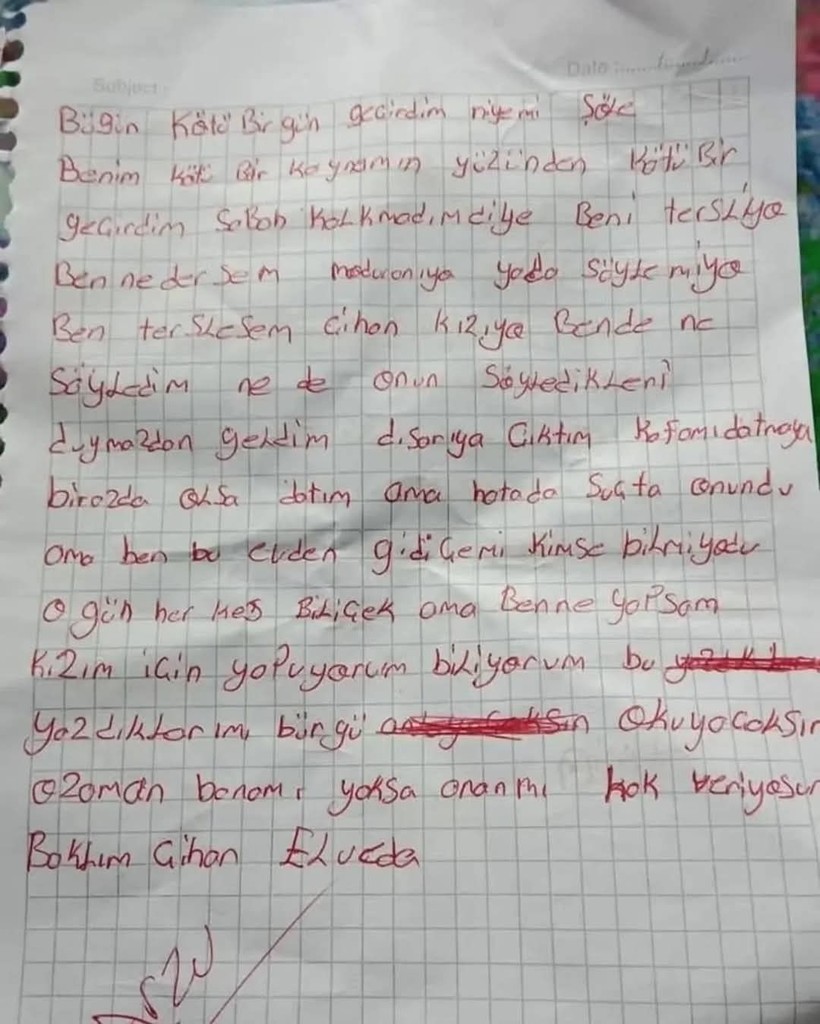 Subject:
Date:
Bügin Kötü Bir gün gecirdim niyemi Şöle
Benim kötü Bir kaynamın yüzünden kötü Bir
gecirdim Sabah kalkmadım diye Beni tersliya
Ben ne der sem yada Söylemiya
Ben terslesem Cihan kızıya Bende ne
Söyledim ne de onun Söyledikleni
duymazdan geldim dısarıya Cıktım kafamıdatnaya
birazda olsa datım ama hatada Sucta onundu
ama ben bu evden gidiCemi kimse bilmiyadu
o gün her kes BiliCek ama Benne yapsam
kızım icin yapuyarum biliyarum bu
yazdıklarımı bürgü okuyacaksın
ozaman banamı yoksa onanmı hak veriyasun
Baklım Cihan Elveda